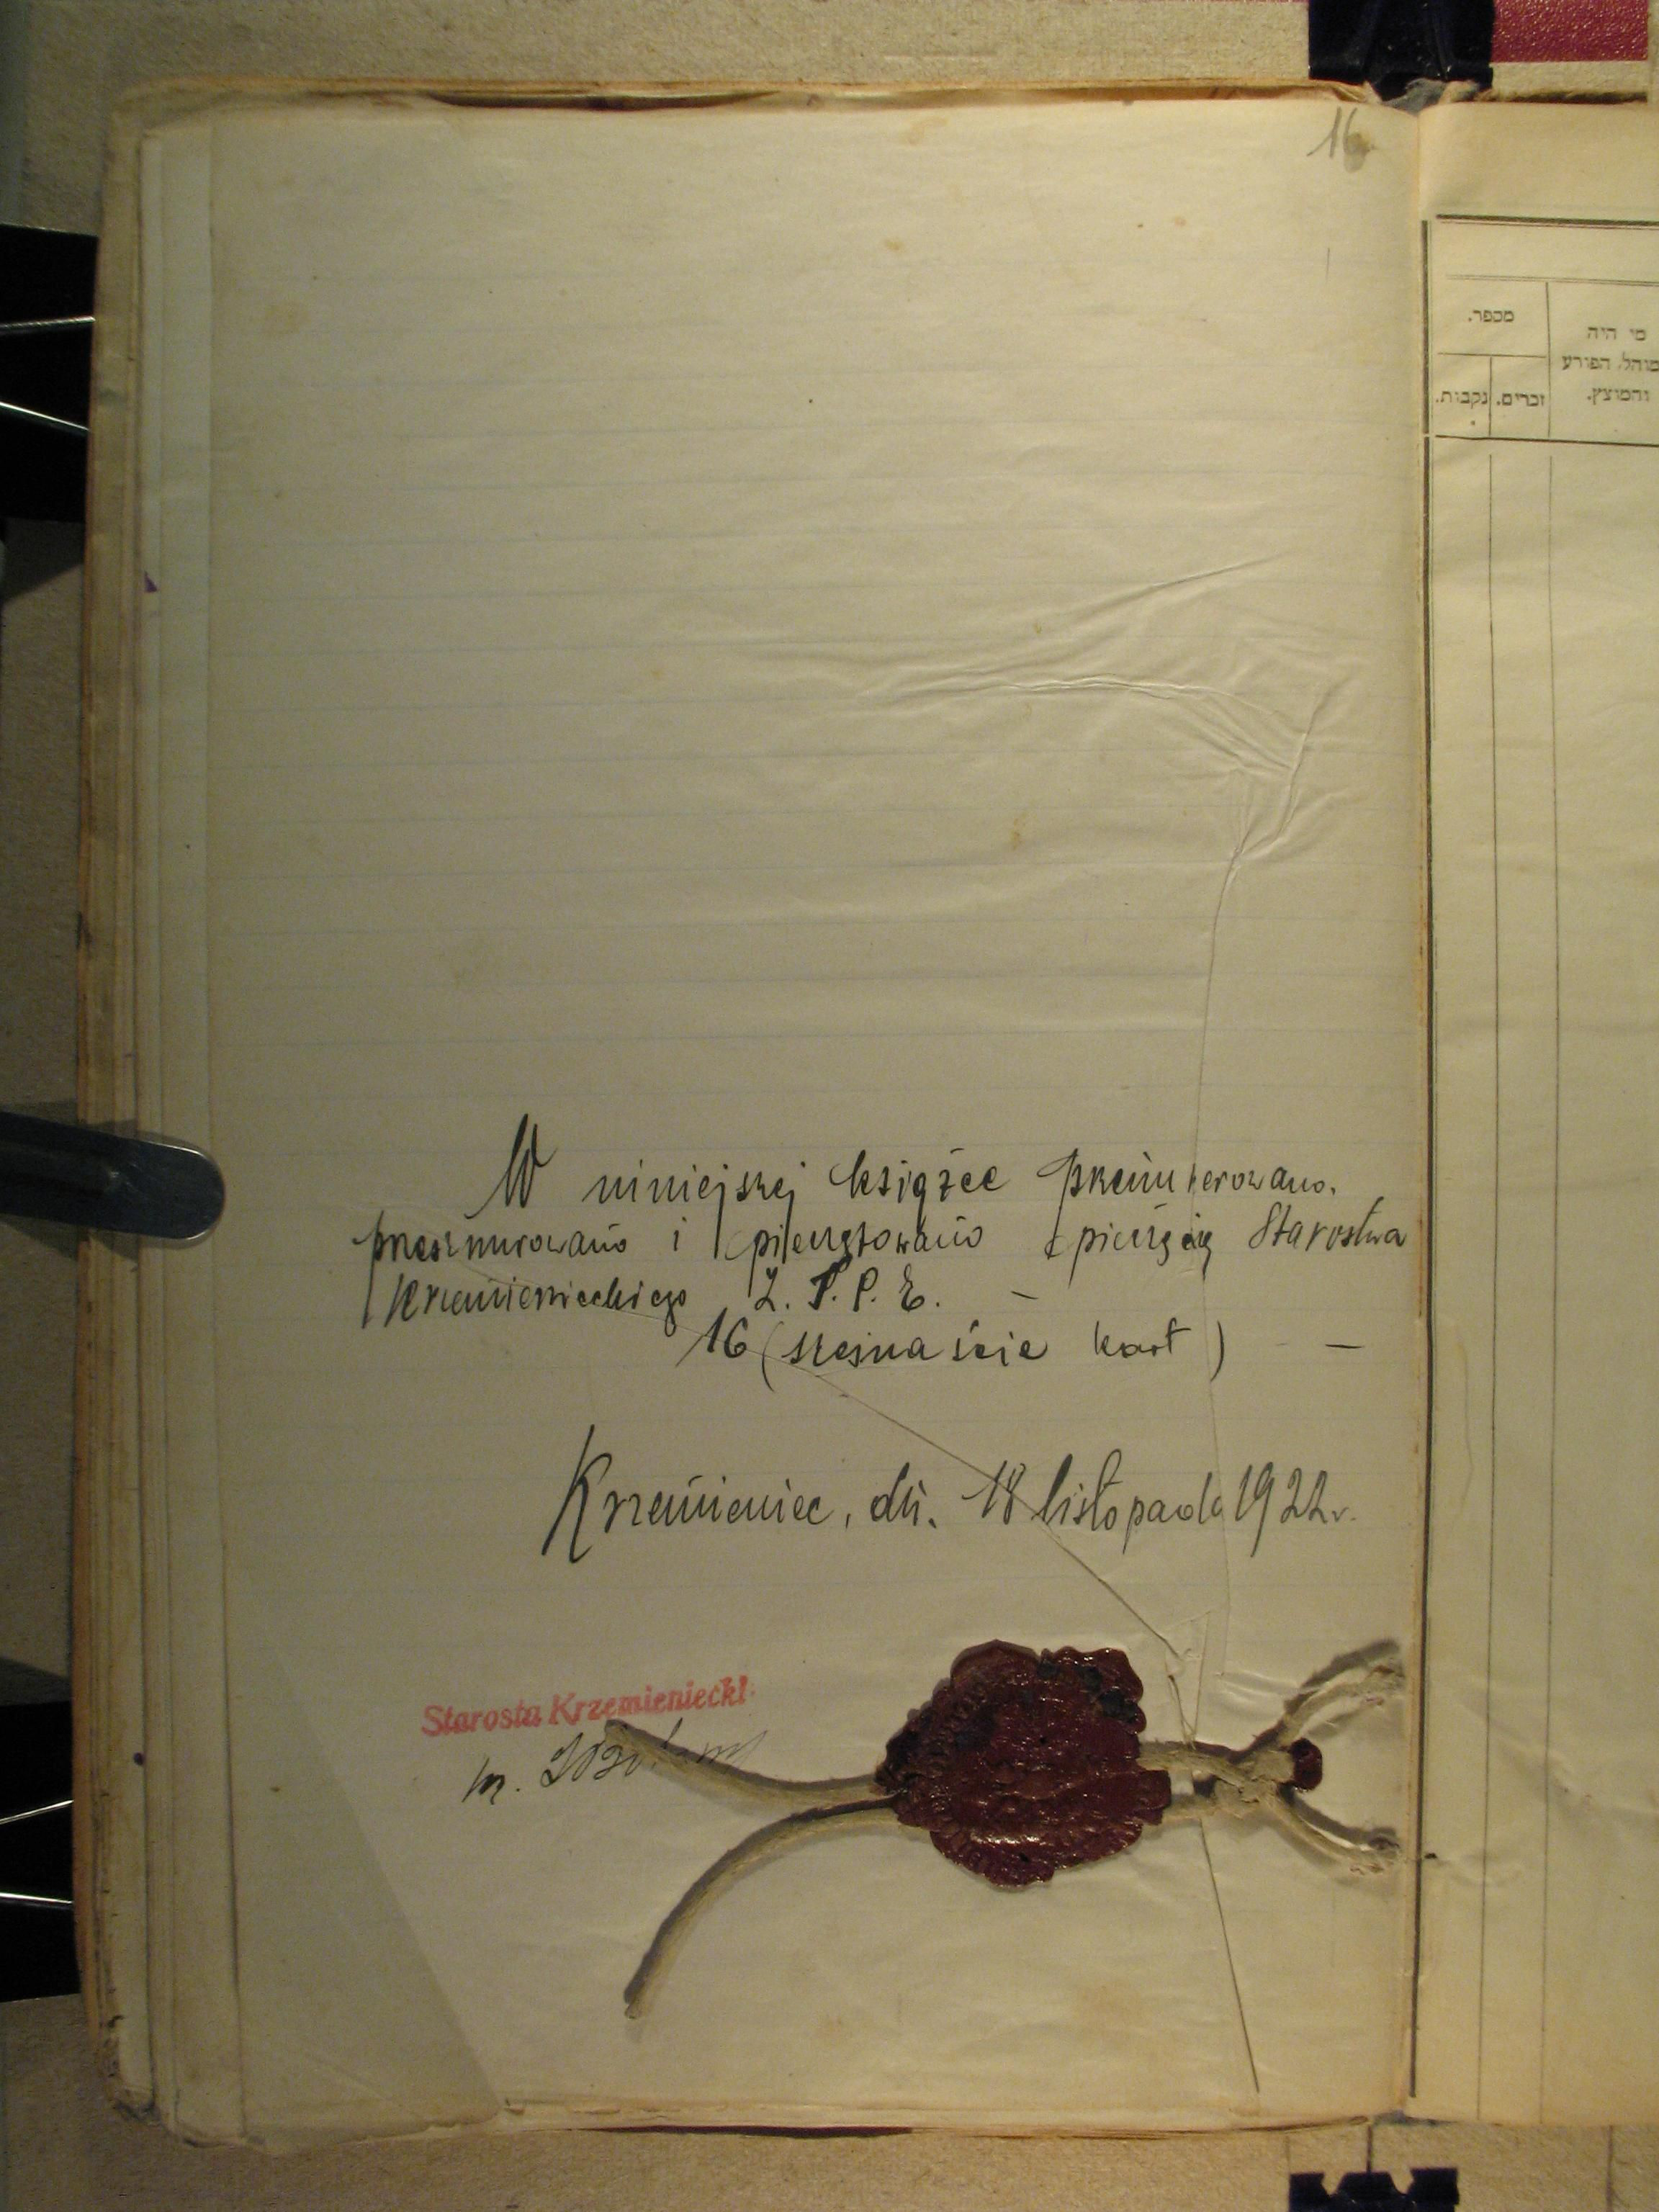 16
W niniejszej książce przenumerowano,
przesznurowano i opieczętowano pieczęcią Starostwa
Krzemienieckiego
16 (szesnaście kart) —
Krzemieniec, dn. 18 listopada 1922 r.
Starosta Krzemieniecki
מספר.
זכרים. נקבות.
מי היה
מוהל, הפורע
והמוצץ.